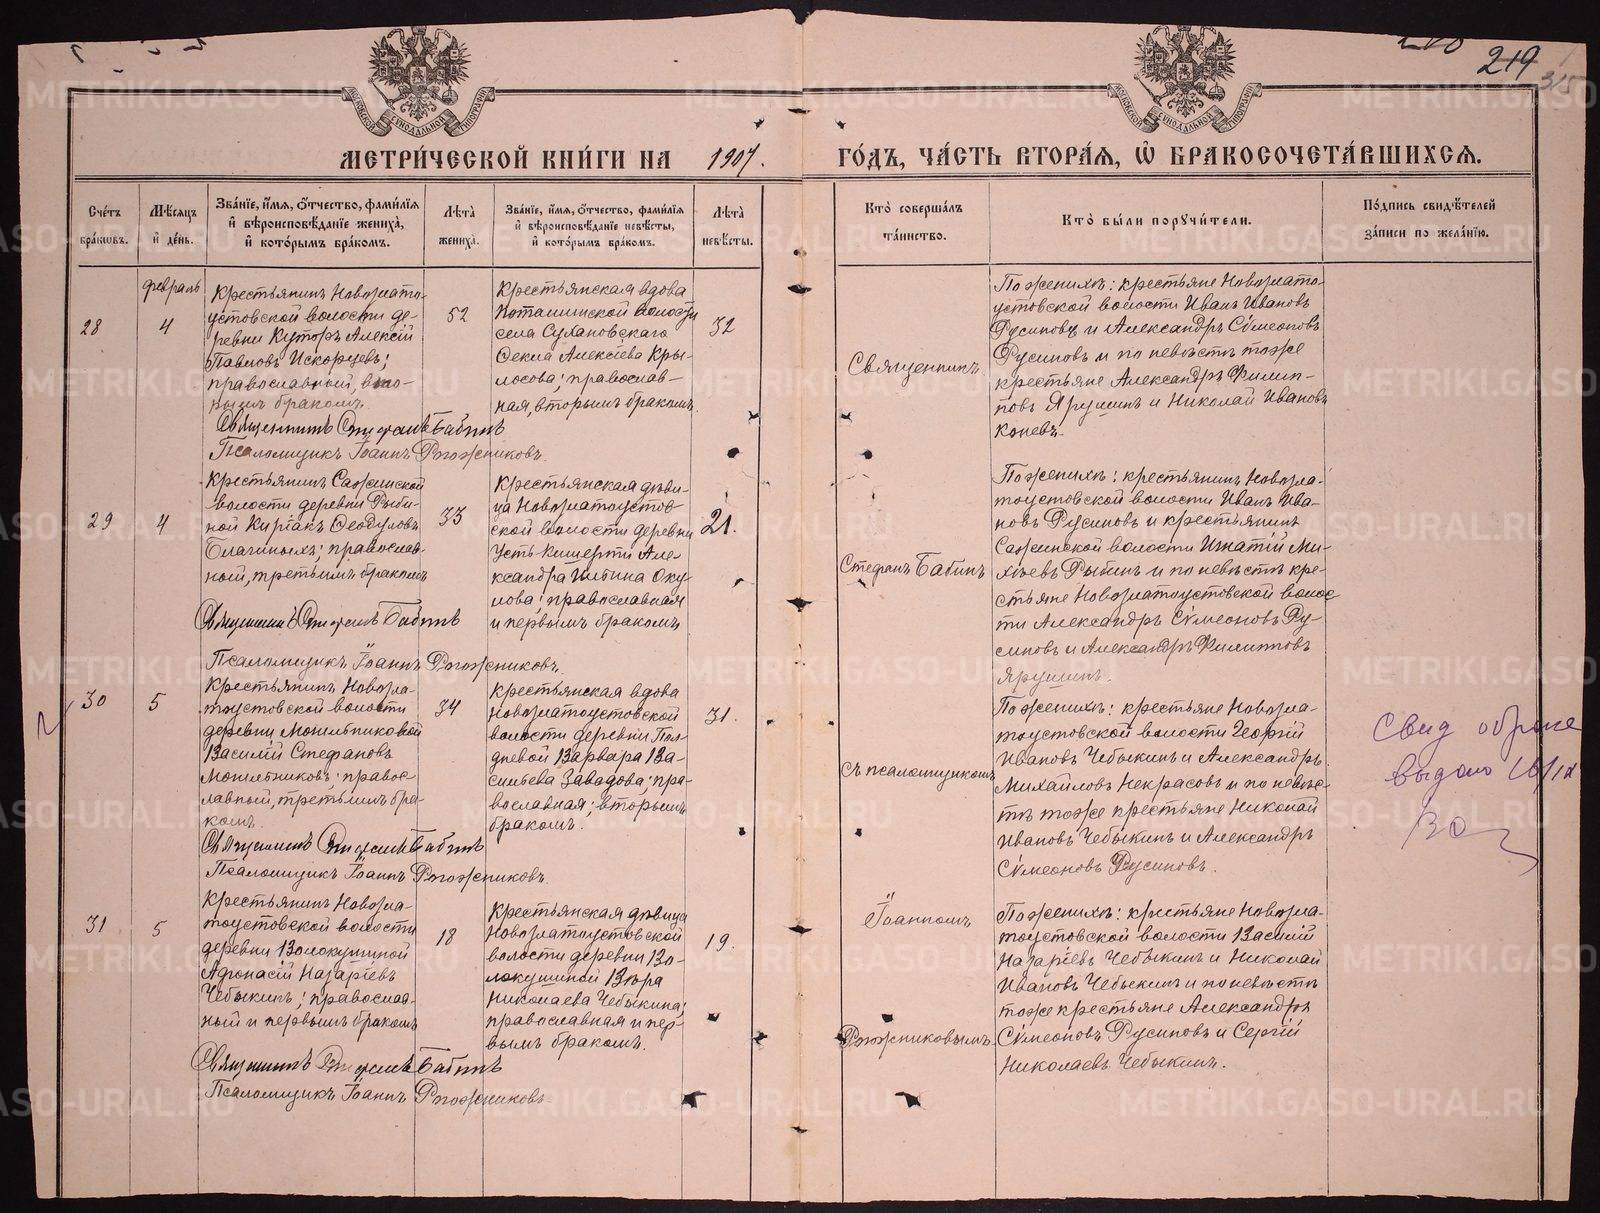 219
315
МЕТРИ́ЧЕСКОЙ КНИ́ГИ НА 1907. ГО́ДЪ, ЧА́СТЬ ВТОРА́Я, Ѡ҆ БРАКОСОЧЕТА́ВШИХСЯ.
Сче́тъ
бра́кѡвъ.
Мѣ́сяцъ
и҆ де́нь.
Зва́нїе, и҆́мя, ѻ҆́тчество, фами́лїя
и҆ вѣроисповѣ́данїе жениха̀,
и҆ кото́рымъ бра́комъ.
Лѣ́та
жениха̀.
Зва́нїе, и҆́мя, ѻ҆́тчество, фами́лїя
и҆ вѣроисповѣ́данїе невѣ́сты,
и҆ кото́рымъ бра́комъ.
Лѣ́та
невѣ́сты.
Кто̀ соверша́лъ
та́инство.
Кто̀ бы́ли поручи́тели.
По́дпись свидѣ́телей
за́писи по жела́нїю.
февраль
28
4
Крестьянинъ Новозлато-
устовской волости де-
ревни Куторъ Алексій
Павловъ Искорцевъ;
православный, вто-
рымъ бракомъ.
Священникъ Стефанъ Бабинъ
Псаломщикъ Іоаннъ Рогожниковъ.
52
Крестьянская вдова
Поташинской волости
села Сухановскаго
Ѳекла Алексіева Кры-
лосова; православ-
ная, вторымъ бракомъ.
32
Священникъ
По женихѣ: крестьяне Новозлато-
устовской волости Иванъ Ивановъ
Русиновъ и Александръ Сѵмеоновъ
Русиновъ и по невѣстѣ тоже
крестьяне Александръ Филип-
повъ Ярушинъ и Николай Ивановъ
Коневъ.
29
4
Крестьянинъ Сажинской
волости деревни Рыби-
ной Киріакъ Ѳеодуловъ
Благиныхъ; православ-
ный, третьимъ бракомъ
Священникъ Стефанъ Бабинъ
Псаломщикъ Іоаннъ Рогожниковъ.
33
Крестьянская дѣви-
ца Новозлатоустов-
ской волости деревни
Усть-Кишерти Але-
ксандра Ильина Оку-
лова; православная
и первымъ бракомъ
21.
Стефанъ Бабинъ
По женихѣ: крестьянинъ Новозла-
тоустовской волости Иванъ Ива-
новъ Русиновъ и крестьянинъ
Сажинской волости Игнатій Ми-
хѣевъ Рыбинъ и по невѣстѣ кре-
стьяне Новозлатоустовской волос-
ти Александръ Сѵмеоновъ Ру-
синовъ и Александръ Филипповъ
Ярушинъ.
30
5
Крестьянинъ Новозла-
тоустовской волости
деревни Могильниковой
Василій Стефановъ
Могильниковъ; правос-
лавный, третьимъ бра-
комъ.
Священникъ Стефанъ Бабинъ
Псаломщикъ Іоаннъ Рогожниковъ.
34
Крестьянская вдова
Новозлатоустовской
волости деревни Пол-
дневой Варвара Ва-
сильева Завадова; пра-
вославная; вторымъ
бракомъ.
31.
съ псаломщикомъ
По женихѣ: крестьяне Новозла-
тоустовской волости Георгій
Ивановъ Чебыкинъ и Александръ
Михайловъ Некрасовъ и по невѣс-
тѣ тоже крестьяне Николай
Ивановъ Чебыкинъ и Александръ
Сѵмеоновъ Русиновъ.
Свид о браке
выдано 16/IX
30
31
5
Крестьянинъ Новозла-
тоустовской волости
деревни Волокушиной
Афонасій Назаріевъ
Чебыкинъ; православ-
ный и первымъ бракомъ
Священникъ Стефанъ Бабинъ
Псаломщикъ Іоаннъ Рогожниковъ.
18
Крестьянская дѣвица
Новозлатоустовской
волости деревни Во-
локушиной Вѣра
Николаева Чебыкина;
православная и пер-
вымъ бракомъ.
19.
Іоанномъ
Рогожниковымъ.
По женихѣ: крестьяне Новозла-
тоустовской волости Василій
Назаріевъ Чебыкинъ и Николай
Ивановъ Чебыкинъ и по невѣстѣ
тоже крестьяне Александръ
Сѵмеоновъ Русиновъ и Сергій
Николаевъ Чебыкинъ.